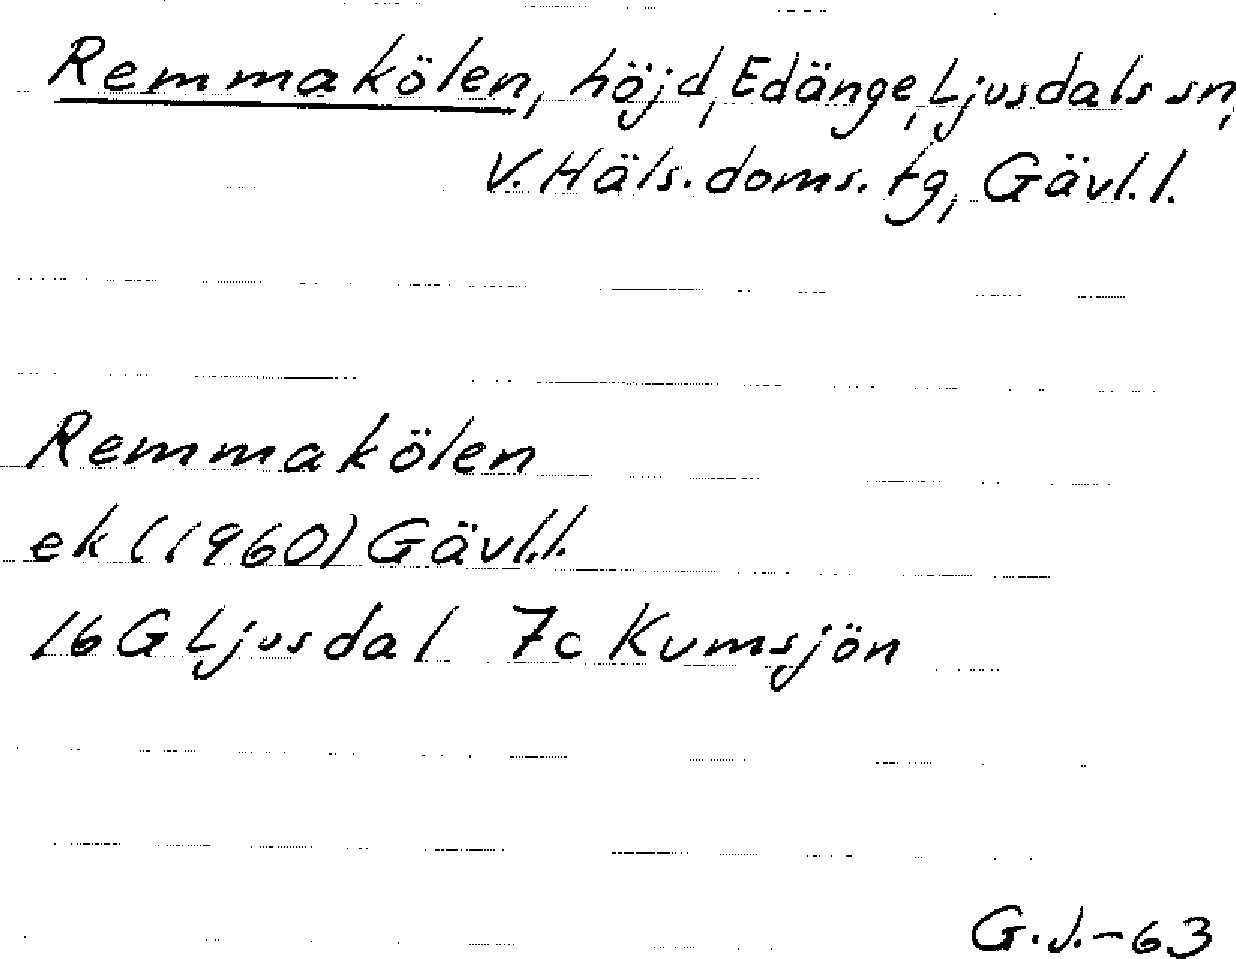 Remmakölen, höjd, Edänge, Ljusdals sn,
V. Häls. doms. tg, Gävl. l.
Remmakölen
ek (1960) Gävl. l.
16 G Ljusdal 7c Kumsjön
G. J. - 63